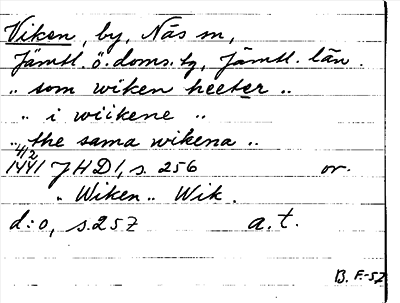 Viken, by, Näs sn,
Jämtl. ö. doms. tg, Jämtl. län.
„ som wiken heeter „
„ i wiikene „
„ the sama wikena „
4/2
1441 JHD 1, s. 256 or.
„ Wiken „ Wik.
d:o, s. 257 a. t.
B. F-52